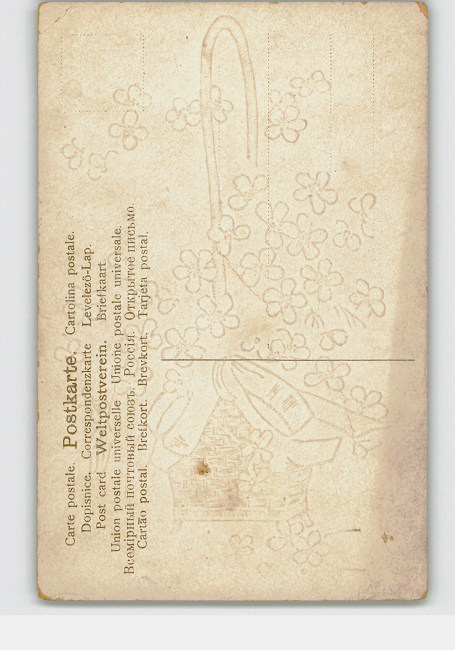 Carte postale. Postkarte. Cartolina postale.
Dopisnice. Correspondenzkarte Levelező-Lap.
Post card Weltpostverein. Briefkaart
Union postale universelle Unione postale universale.
Всемірный почтовый союзъ. Россія. Открытое письмо.
Cartão postal. Brefkort. Brevkort. Tarjeta postal.